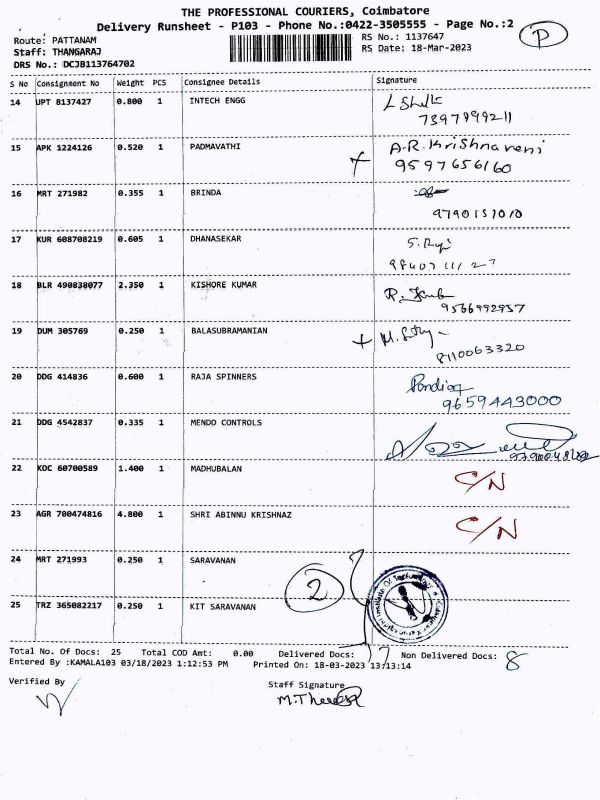 THE PROFESSIONAL COURIERS, Coimbatore
Delivery Runsheet - P103 - Phone No.:0422-3505555 - Page No.:2
P
Route: PATTANAM
RS No.: 1137647
Staff: THANGARAJ
RS Date: 18-Mar-2023
DRS No.: DCJB113764702
S No Consignment No Weight PCS Consignee Details Signature
14 UPT 8137427 0.800 1 INTECH ENGG
7397999211
15 APK 1224126 0.520 1 PADMAVATHI A.R.Krishnaveni
9597656160
16 MRT 271982 0.355 1 BRINDA
9790151010
17 KUR 608708219 0.605 1 DHANASEKAR
18 BLR 490838077 2.350 1 KISHORE KUMAR
9566992957
19 DUM 305769 0.250 1 BALASUBRAMANIAN
8110063320
20 DDG 414836 0.600 1 RAJA SPINNERS
9659443000
21 DDG 4542837 0.335 1 MENDO CONTROLS
22 KOC 60700589 1.400 1 MADHUBALAN C/N
23 AGR 700474816 4.800 1 SHRI ABINNU KRISHNAZ C/N
24 MRT 271993 0.250 1 SARAVANAN
2
25 TRZ 365082217 0.250 1 KIT SARAVANAN
Total No. Of Docs: 25 Total COD Amt: 0.00 Delivered Docs: 17 Non Delivered Docs: 8
Entered By :KAMALA103 03/18/2023 1:12:53 PM Printed On: 18-03-2023 13:13:14
Verified By
Staff Signature